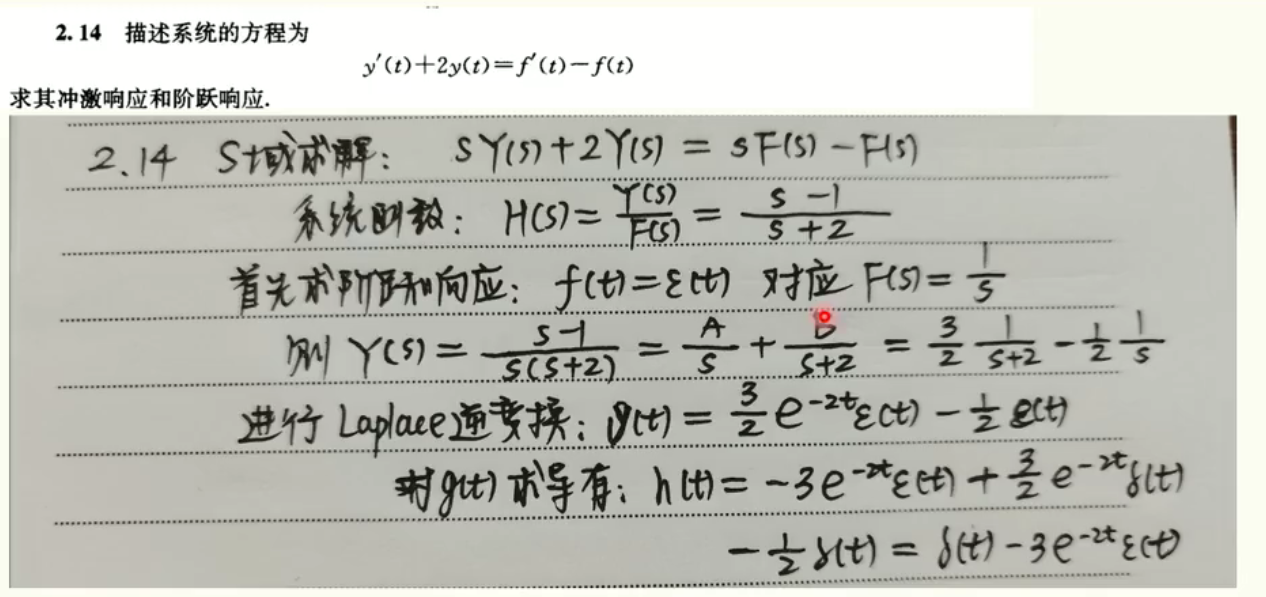 2.14 描述系统的方程为
y′(t)+2y(t)=f′(t)−f(t)
求其冲激响应和阶跃响应.
2.14 S域求解: sY(s)+2Y(s) = sF(s)−F(s)
系统函数: H(s)= Y(s)/F(s) = (s−1)/(s+2)
首先求阶跃响应: f(t)=ε(t) 对应 F(s)= 1/s
则 Y(s)= (s−1)/(s(s+2)) = A/s + B/(s+2) = 3/2 1/(s+2) − 1/2 1/s
进行 Laplace逆变换: g(t) = 3/2 e^(−2t) ε(t) − 1/2 ε(t)
对g(t)求导有: h(t) = −3e^(−2t) ε(t) + 3/2 e^(−2t) δ(t)
− 1/2 δ(t) = δ(t) − 3e^(−2t) ε(t)